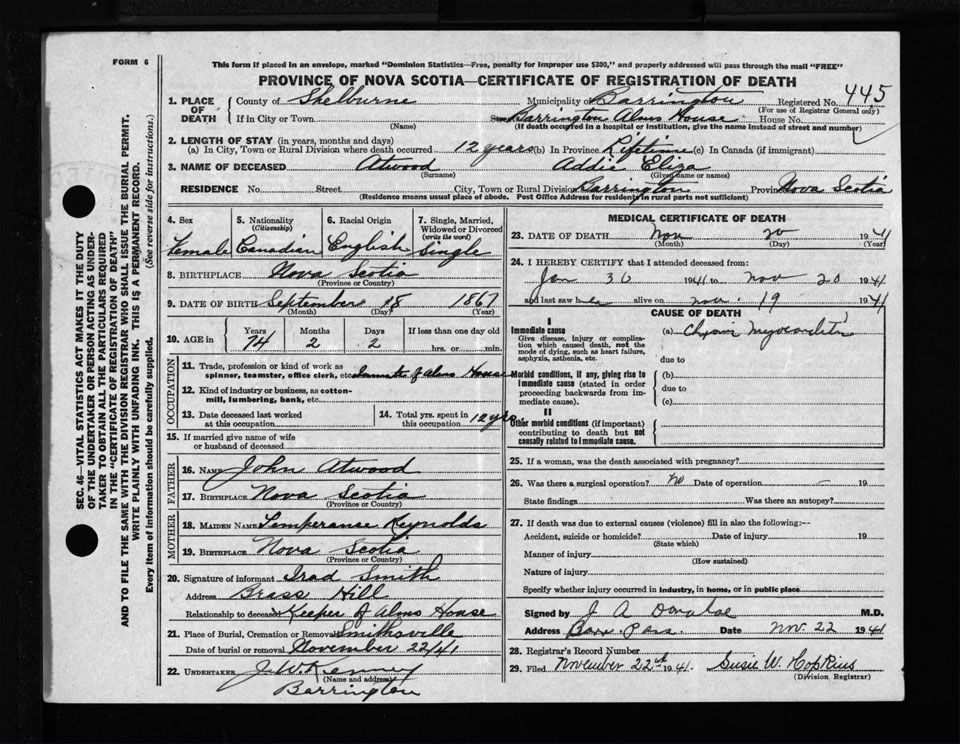 FORM 6
This form if placed in an envelope, marked "Dominion Statistics—Free, penalty for improper use $300," and properly addressed will pass through the mail "FREE"
PROVINCE OF NOVA SCOTIA—CERTIFICATE OF REGISTRATION OF DEATH
1. PLACE OF DEATH
County of Shelburne Municipality of Barrington Registered No. 445
(For use of Registrar General only)
If in City or Town Barrington Alms House House No.
(Name) (If death occurred in a hospital or institution, give the name instead of street and number)
2. LENGTH OF STAY (in years, months and days)
(a) In City, Town or Rural Division where death occurred 12 years (b) In Province Lifetime (c) In Canada (if immigrant)
3. NAME OF DECEASED Atwood Addie Eliza
(Surname) (Given name or names)
RESIDENCE No. Street City, Town or Rural Division Barrington Province Nova Scotia
(Residence means usual place of abode. Post Office Address for residents in rural parts not sufficient)
4. Sex Female
5. Nationality (Citizenship) Canadian
6. Racial Origin English
7. Single, Married, Widowed or Divorced (write the word) Single
8. BIRTHPLACE Nova Scotia
(Province or Country)
9. DATE OF BIRTH September 18 1867
(Month) (Day) (Year)
10. AGE in Years Months Days If less than one day old
74 2 2 hrs. or min.
OCCUPATION
11. Trade, profession or kind of work as spinner, teamster, office clerk, etc. Inmate of Alms House
12. Kind of industry or business, as cotton-mill, lumbering, bank, etc.
13. Date deceased last worked at this occupation
14. Total yrs. spent in this occupation 12 yrs
15. If married give name of wife or husband of deceased
FATHER
16. NAME John Atwood
17. BIRTHPLACE Nova Scotia
(Province or Country)
MOTHER
18. MAIDEN NAME Temperance Reynolds
19. BIRTHPLACE Nova Scotia
(Province or Country)
20. Signature of informant Irad Smith
Address Brass Hill
Relationship to deceased Keeper of Alms House
21. Place of Burial, Cremation or Removal Smithsville
Date of burial or removal November 22/41
22. UNDERTAKER J. W. Kenney
(Name and address)
Barrington
MEDICAL CERTIFICATE OF DEATH
23. DATE OF DEATH Nov 20 1941
(Month) (Day) (Year)
24. I HEREBY CERTIFY that I attended deceased from:
Jan 30 1941 to Nov 20 1941
and last saw her alive on Nov. 19 1941
CAUSE OF DEATH
I
Immediate cause
Give disease, injury or complication which caused death, not the mode of dying, such as heart failure, asphyxia, asthenia, etc.
(a) Chronic myocarditis
due to
Morbid conditions, if any, giving rise to immediate cause (stated in order proceeding backwards from immediate cause).
(b)
due to
(c)
II
Other morbid conditions (if important) contributing to death but not causally related to immediate cause.
25. If a woman, was the death associated with pregnancy?
26. Was there a surgical operation? no Date of operation — 19
State findings Was there an autopsy?
27. If death was due to external causes (violence) fill in also the following:—
Accident, suicide or homicide? Date of injury 19
(State which)
Manner of injury
(How sustained)
Nature of injury
Specify whether injury occurred in industry, in home, or in public place
Signed by J A Donahoe M.D.
Address Barr Pass. Date Nov. 22 1941
28. Registrar's Record Number
29. Filed November 22nd 1941. Susie W. Hopkins
(Division Registrar)
SEC. 46—VITAL STATISTICS ACT MAKES IT THE DUTY
OF THE UNDERTAKER OR PERSON ACTING AS UNDER-
TAKER TO OBTAIN ALL THE PARTICULARS REQUIRED
IN THE "CERTIFICATE OF REGISTRATION OF DEATH"
AND TO FILE THE SAME WITH THE DIVISION REGISTRAR WHO SHALL ISSUE THE BURIAL PERMIT.
WRITE PLAINLY WITH UNFADING INK. THIS IS A PERMANENT RECORD.
Every item of Information should be carefully supplied. (See reverse side for instructions.)